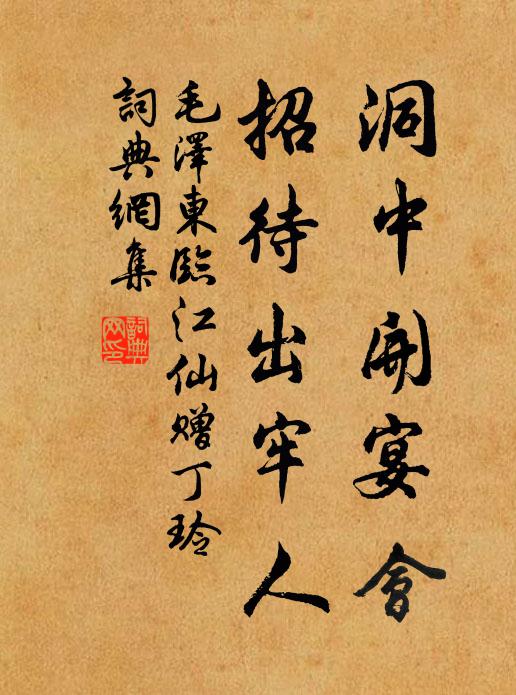 洞中開宴會
招待出牢人
毛澤東臨江仙赠丁玲
詞典網集
詞典
网印